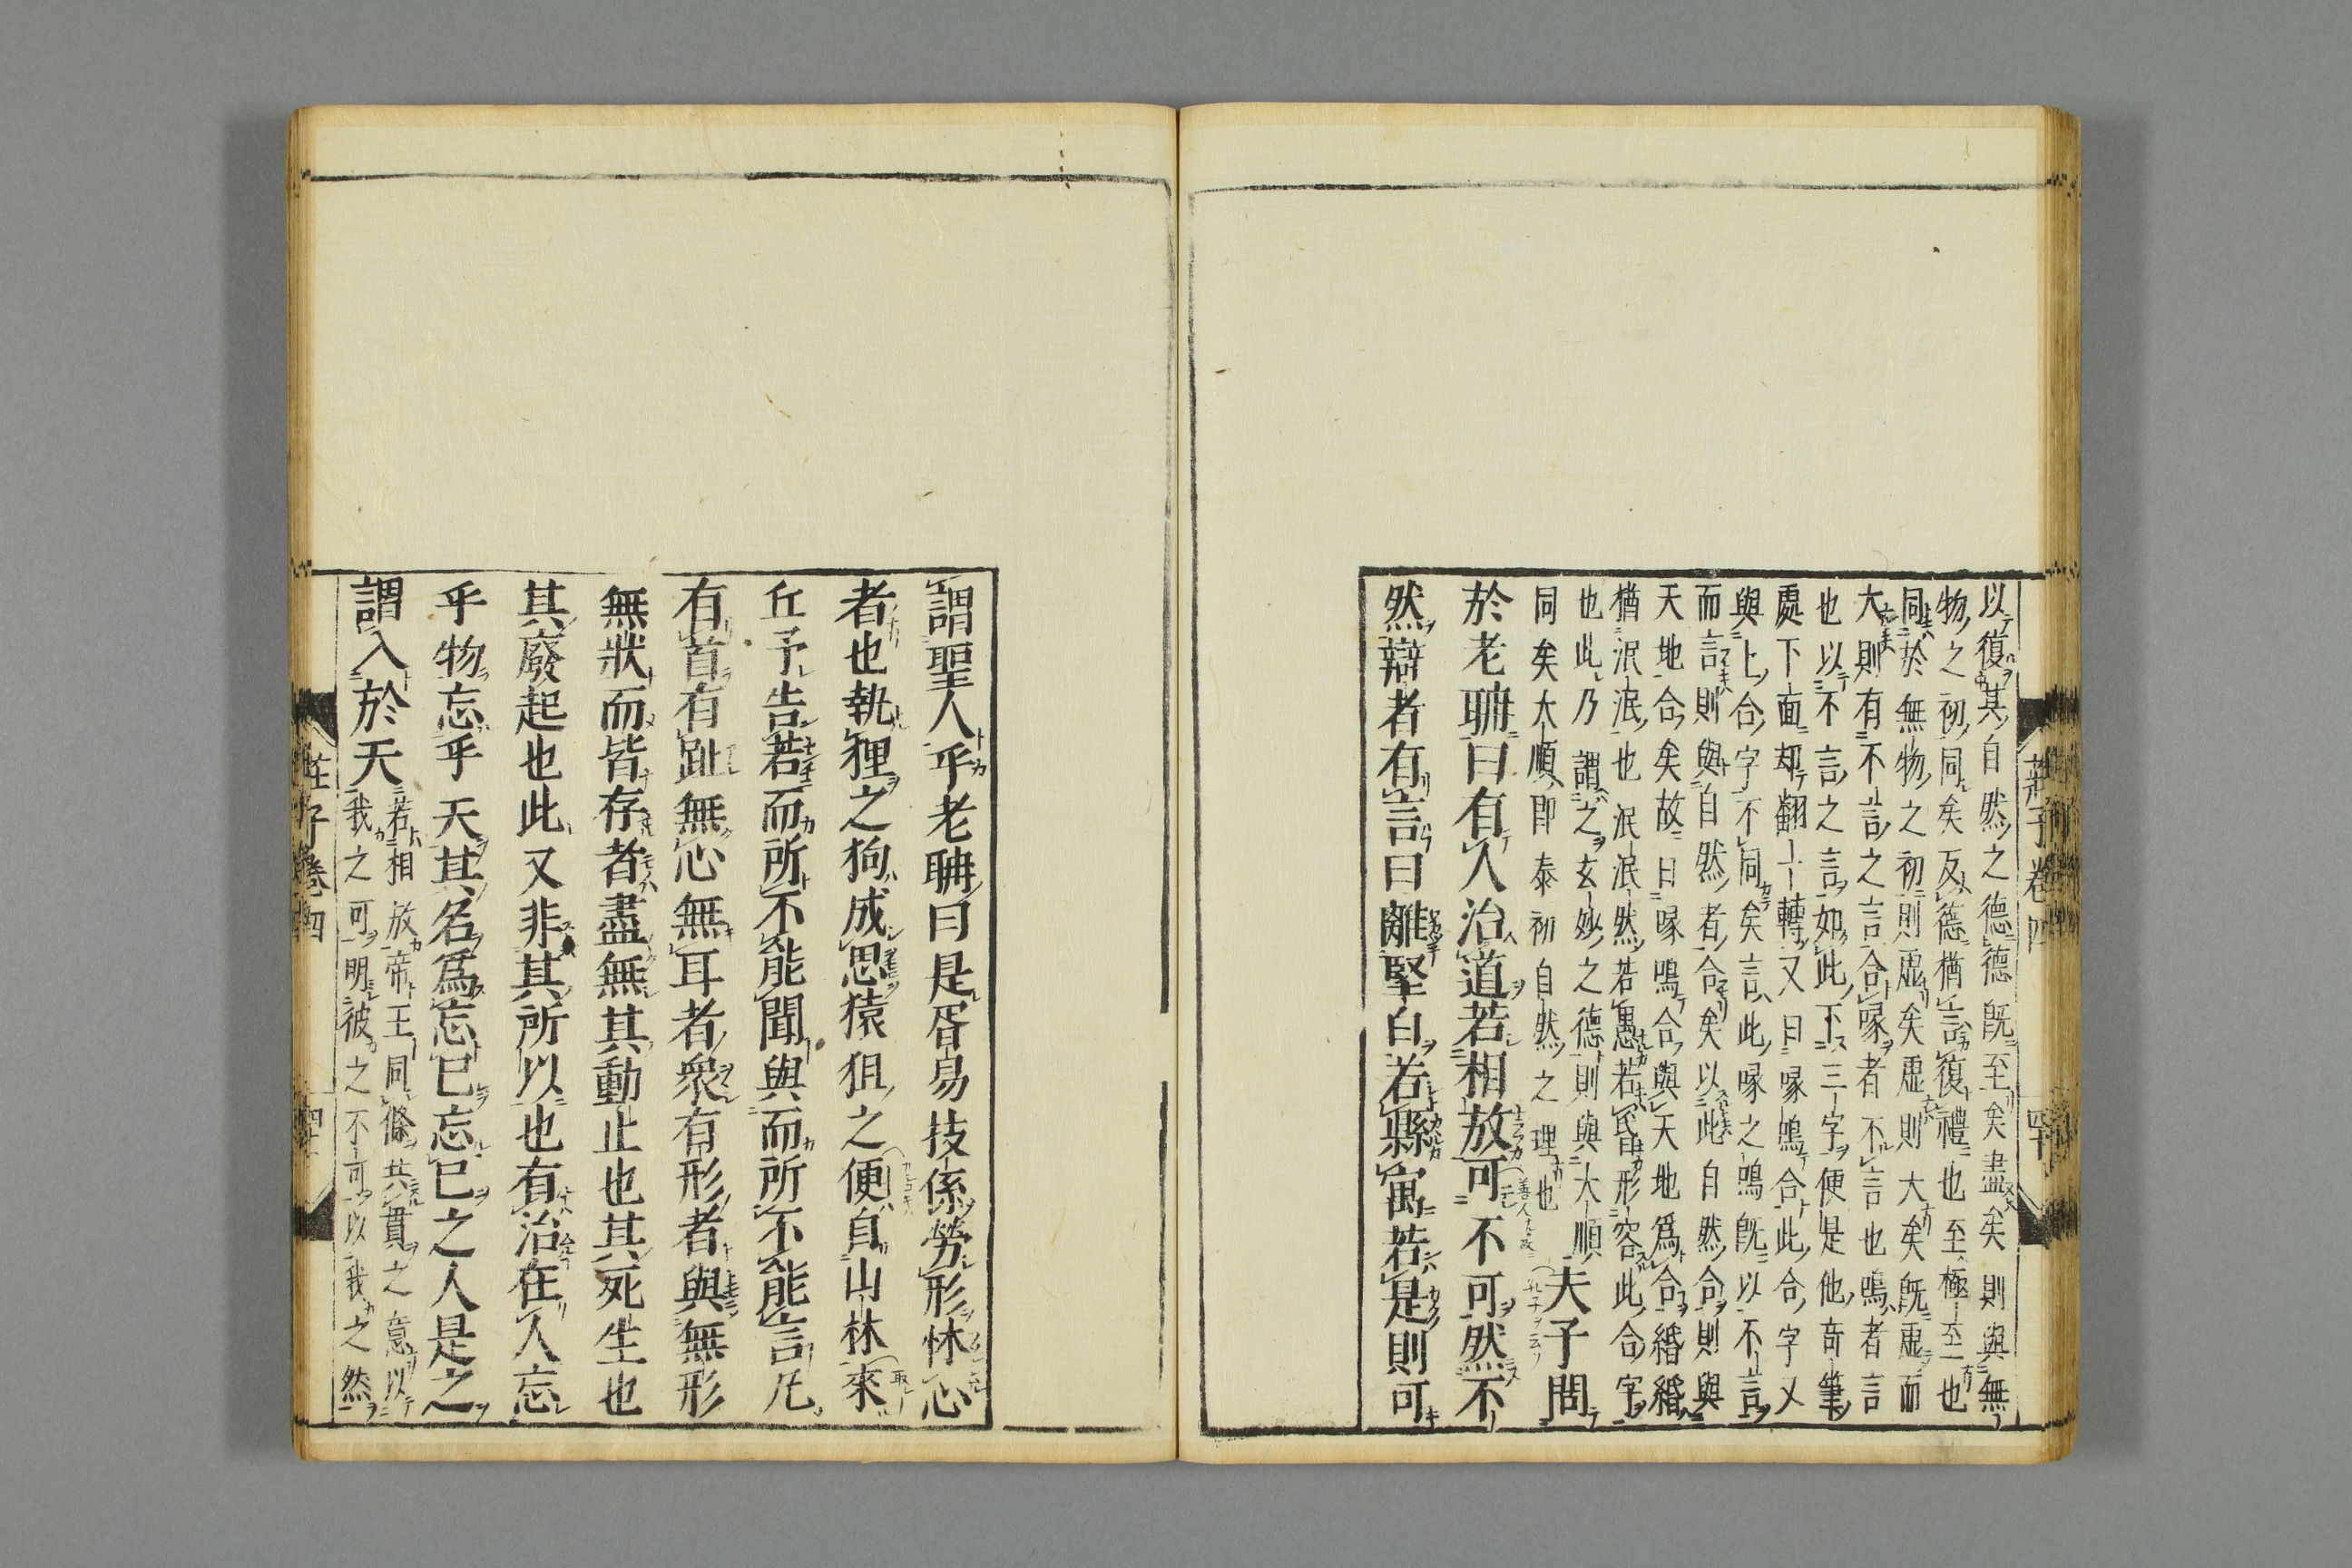 以復其自然之德德既至矣盡矣則與無
物之初同矣反德猶言復禮也至極至也
同於無物之初則虛矣虛則大矣既虛而
大則有不言之言合喙者不言也鳴者言
也以不言之言如此下三字便是他奇筆
處下面却翻一轉又曰喙鳴合此合字又
與上合字不同矣言此喙之鳴既以不言
而言則與自然者合矣以此自然合則與
天地合矣故曰喙鳴合與天地為合緡緡
猶泯泯也泯泯然若愚若昏形容此合字
也此乃謂之玄妙之德則與大順
同矣大順即泰初自然之理也
夫子問
於老聃曰有人治道若相放可不可然不
然辯者有言曰離堅白若縣㝢若是則可
莊子卷四
四十
謂聖人乎老聃曰是胥易技係勞形怵心
者也執狸之狗成思猿狙之便自山林來
丘予告若而所不能聞與而所不能言凡
有首有趾無心無耳者衆有形者與無形
無狀而皆存者盡無其動止也其死生也
其廢起也此又非其所以也有治在人忘
乎物忘乎天其名爲忘已忘已之人是之
謂入於天
若相放帝王同條共貫之意以
我之可明彼之不可以我之然
莊子卷四
四十